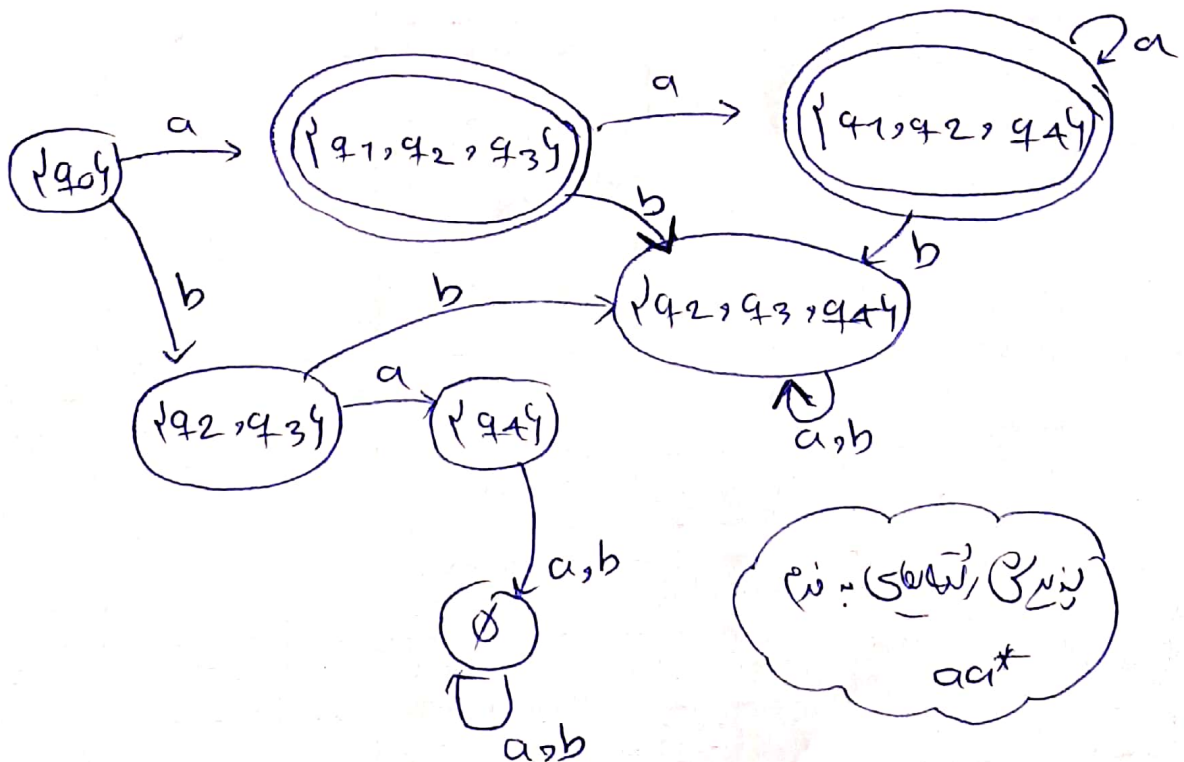 a
a
{q0}
a
{q1,q2,q3}
a
{q1,q2,q4}
b
b
b
b
{q2,q3,q4}
{q2,q3}
a
{q4}
a,b
a,b
∅
a,b
پذیرش رشته‌های به فرم
aa*